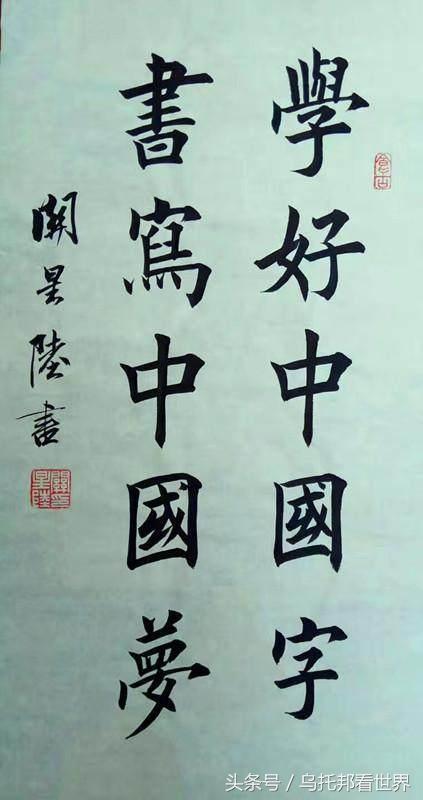 學好中國字
書寫中國夢
關星陸書
頭条号／乌托邦看世界